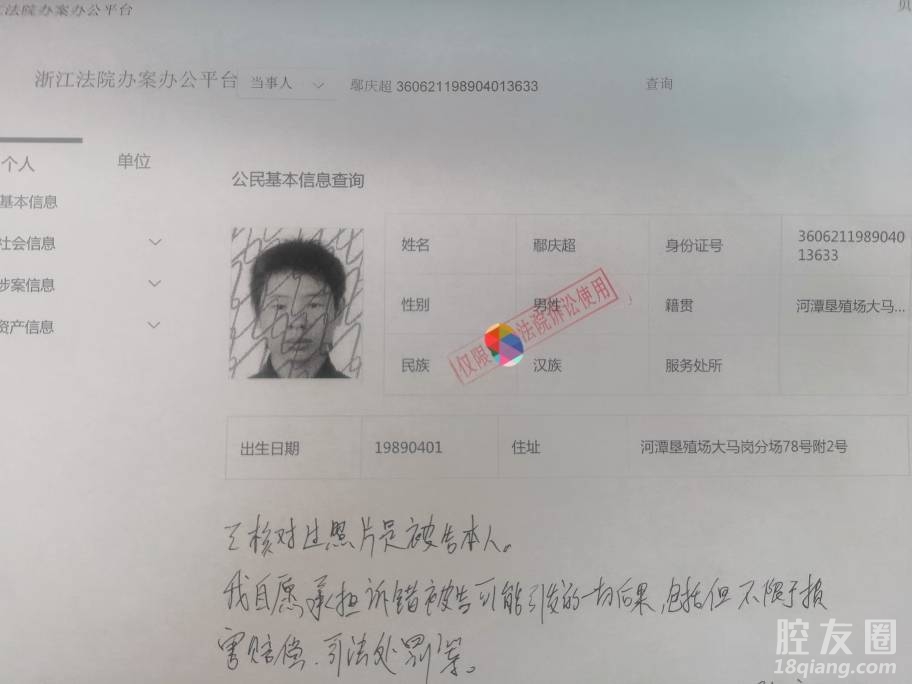 江法院办案办公平台
页
浙江法院办案办公平台 当事人 鄢庆超 360621198904013633 查询
个人 单位
基本信息
社会信息
涉案信息
资产信息
公民基本信息查询
姓名 鄢庆超 身份证号 3606211989040
13633
性别 男性 籍贯 河潭垦殖场大马...
民族 汉族 服务处所
仅限法院诉讼使用
出生日期 19890401 住址 河潭垦殖场大马岗分场78号附2号
已核对过照片是被告本人。
我自愿承担诉错被告可能引发的一切后果,包括但不限于损
害赔偿、司法处罚等。
腔友圈
18qiang.com